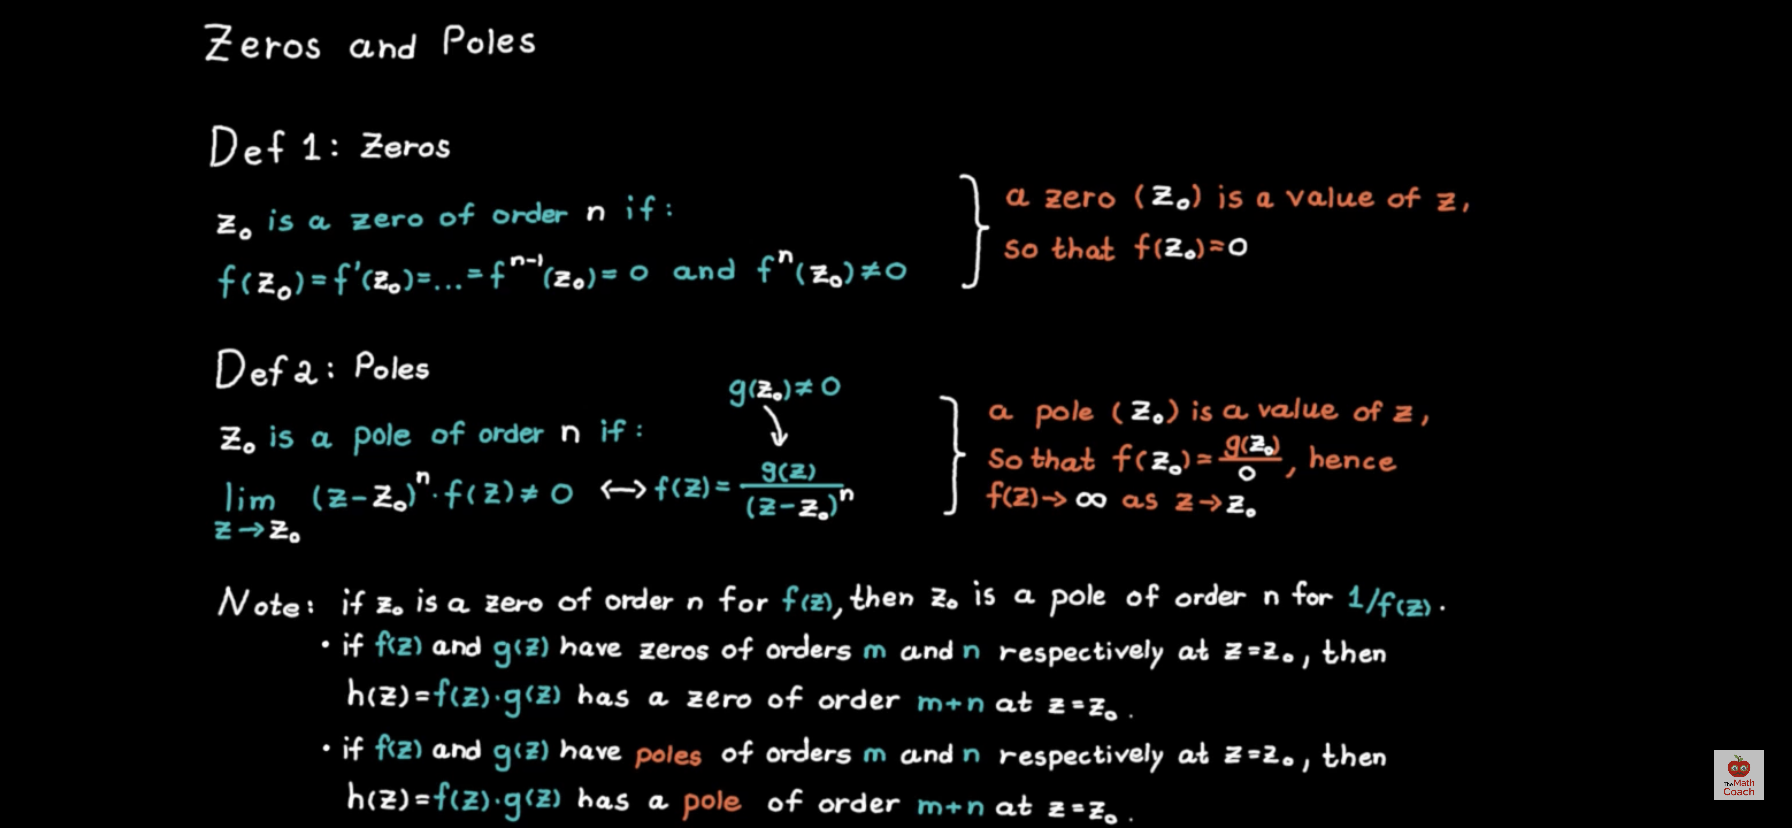 Zeros and Poles
Def 1: Zeros
z₀ is a zero of order n if:
f(z₀)=f'(z₀)=...=fⁿ⁻¹(z₀)=0 and fⁿ(z₀)≠0
a zero (z₀) is a value of z,
so that f(z₀)=0
Def 2: Poles
g(z₀)≠0
z₀ is a pole of order n if:
lim (z-z₀)ⁿ·f(z)≠0 ↔ f(z)= g(z)
z→z₀ (z-z₀)ⁿ
a pole (z₀) is a value of z,
So that f(z₀)=g(z₀)/0, hence
f(z)→∞ as z→z₀
Note: if z₀ is a zero of order n for f(z), then z₀ is a pole of order n for 1/f(z).
• if f(z) and g(z) have zeros of orders m and n respectively at z=z₀, then
h(z)=f(z)·g(z) has a zero of order m+n at z=z₀.
• if f(z) and g(z) have poles of orders m and n respectively at z=z₀, then
h(z)=f(z)·g(z) has a pole of order m+n at z=z₀.
The Math
Coach